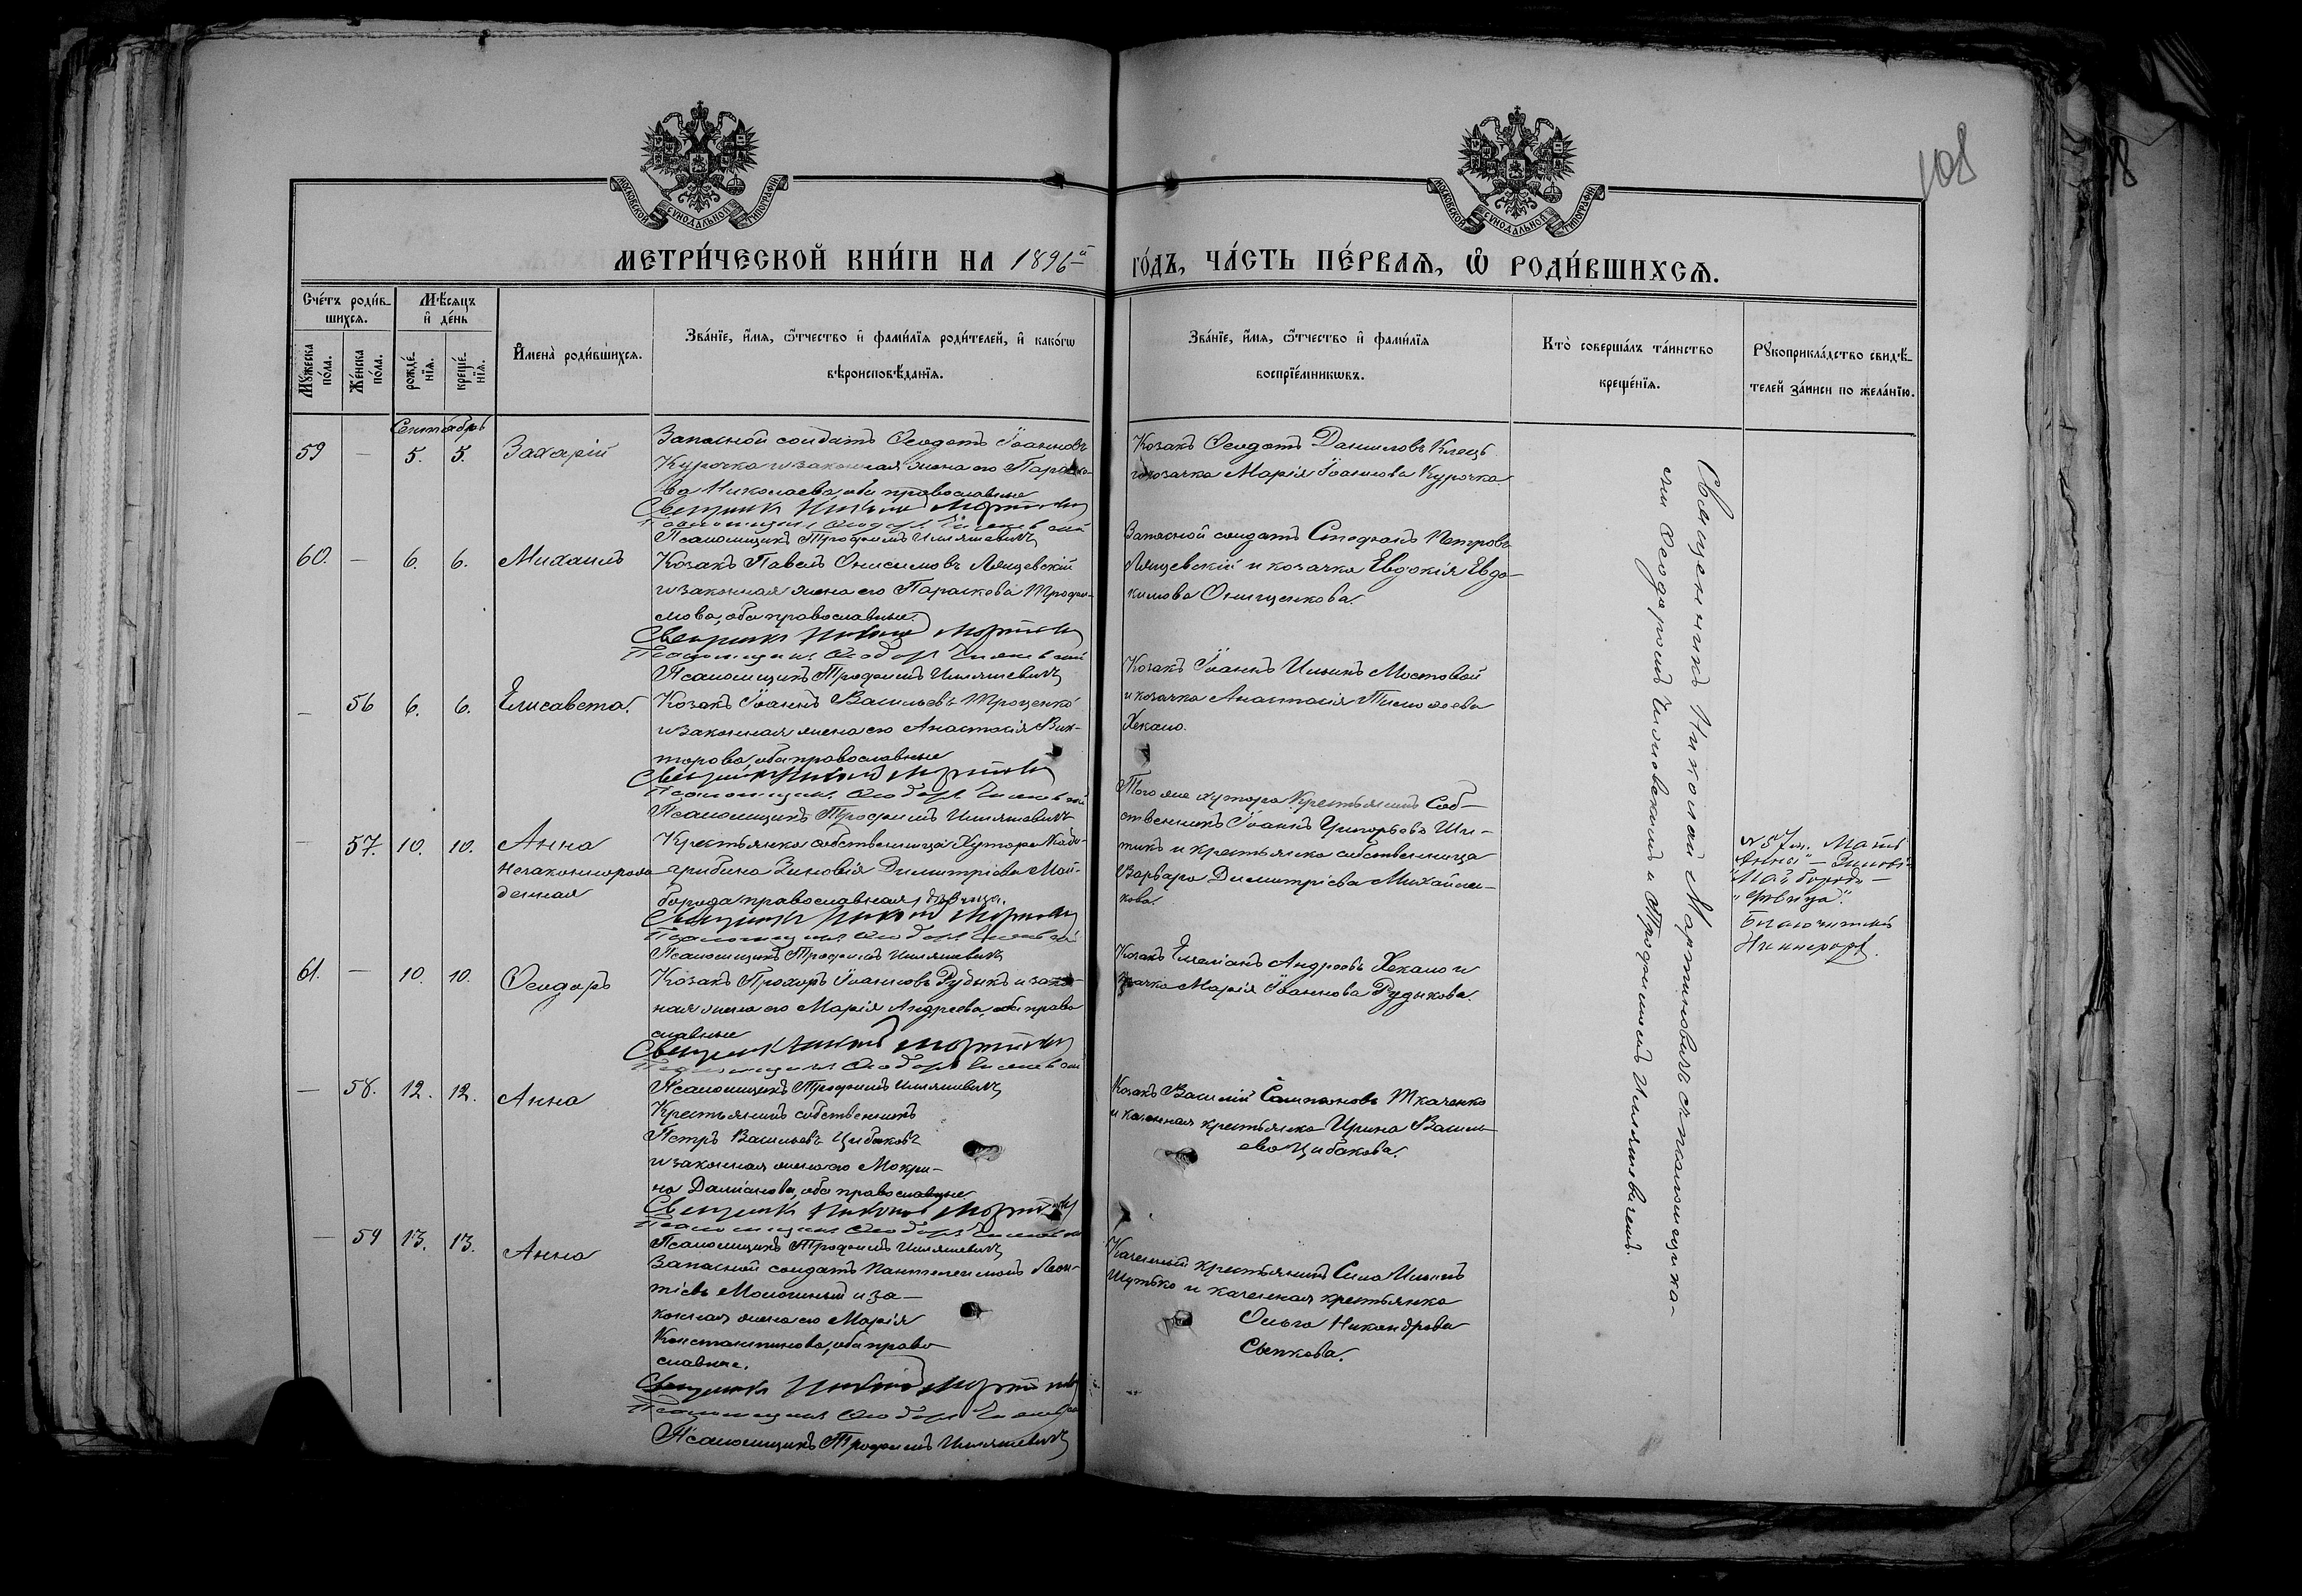 108
МОСКОВСКОЙ СУНОДАЛЬНОЙ ТИПОГРАФІИ
МОСКОВСКОЙ СУНОДАЛЬНОЙ ТИПОГРАФІИ
МЕТРИ́ЧЕСКОЙ КНИ́ГИ НА 1896-й
ГО́ДЪ, ЧА́СТЬ ПЕ́РВАѦ, Ѽ РОДИ́ВШИХСѦ.
Сче́тъ роди́в-
шихсѧ.
Мꙋ́жеска по́ла.
Же́нска по́ла.
Мѣ́сѧцъ
и҆ де́нь
рожде́-
нїѧ.
креще́-
нїѧ.
И҆мена̀ роди́вшихсѧ.
Зва́нїе, и҆́мѧ, ѻ҆́тчество и҆ фами́лїѧ роди́телей, и҆ како́гѡ
вѣроисповѣ́данїѧ.
Зва́нїе, и҆́мѧ, ѻ҆́тчество и҆ фами́лїѧ
воспрїе́мникѡвъ.
Кто̀ соверша́лъ та́инство
креще́нїѧ.
Рꙋкоприкла́дство свидѣ́-
телей за́писи по жела́нїю.
Сентябрь
59 — 5. 5. Захарій
Запасной солдатъ Ѳеодотъ Іоанновъ
Курочка и законная жена его Параске-
ва Николаева, оба православные
Священникъ Николай Мартиновичъ
Псаломщикъ Ѳеодоръ
Псаломщикъ Трофимъ Имшеневичъ
Козакъ Ѳеодотъ Данииловъ Клецъ
и козачка Марія Іоаннова Курочка.
60. — 6. 6. Михаилъ
Козакъ Павелъ Онисимовъ Лящевскій
и законная жена его Параскева Трофи-
мова, оба православные.
Священникъ Николай Мартиновичъ
Псаломщикъ Ѳеодоръ
Псаломщикъ Трофимъ
Запасной солдатъ Стефанъ Петровъ
Лящевскій и козачка Евдокія Евдо-
кимова Онищенкова.
— 56 6. 6. Елисавета.
Козакъ Іоаннъ Васильевъ Троценко
и законная жена его Анастасія Вик-
торова, оба православные
Священникъ Николай Мартиновичъ
Псаломщикъ Ѳеодоръ
Псаломщикъ Трофимъ
Козакъ Іоаннъ Ильинъ Мостовой
и козачка Анастасія Тимофеева
Хекало.
— 57. 10. 10. Анна
незаконнорож-
денная
Крестьянка собственница Хутора
Зиновія Димитріева Май-
борода, православная, дѣвица.
Священникъ Николай Мартиновичъ
Псаломщикъ Ѳеодоръ
Псаломщикъ Трофимъ
Того же хутора Крестьянинъ Соб-
ственникъ Іоаннъ Григорьевъ Ши-
тикъ и крестьянка собственница
Варвара Димитріева Михайли-
кова.
№ 57 ж. Мать
Анны — Зиновія
"Майборода —
"дѣвица".
Благочинный
61. — 10. 10. Ѳеодоръ
Козакъ Прохоръ Іоанновъ Рудыкъ и закон-
ная жена его Марія Андреева, оба право
славные
Священникъ Николай Мартиновичъ
Псаломщикъ Ѳеодоръ
Псаломщикъ Трофимъ
Козакъ Емеліанъ Андреевъ Хекало и
козачка Марія Іоаннова Рудыкова.
— 58. 12. 12. Анна
Крестьянинъ собственникъ
Петръ Васильевъ Цибаковъ
и законная жена его Макри-
на Даміанова, оба православные
Священникъ Николай Мартиновичъ
Псаломщикъ Ѳеодоръ
Псаломщикъ Трофимъ
Козакъ Василій Сампсоновъ Ткаченко
и казенная крестьянка Ирина Василь-
ева Цибакова.
— 59 13. 13. Анна
Запасной солдатъ Пантелеимонъ Леон-
тіевъ и за-
конная жена его Марія
Константинова, оба право
славные.
Священникъ Николай Мартиновичъ
Псаломщикъ Ѳеодоръ
Псаломщикъ Трофимъ
Казенный крестьянинъ Сила Ильинъ
Шутько и казенная крестьянка
Ольга Никандрова
Сѣткова.
Священникъ Николай Мартиновичъ съ псаломщика-
ми Ѳеодоромъ и Трофимомъ